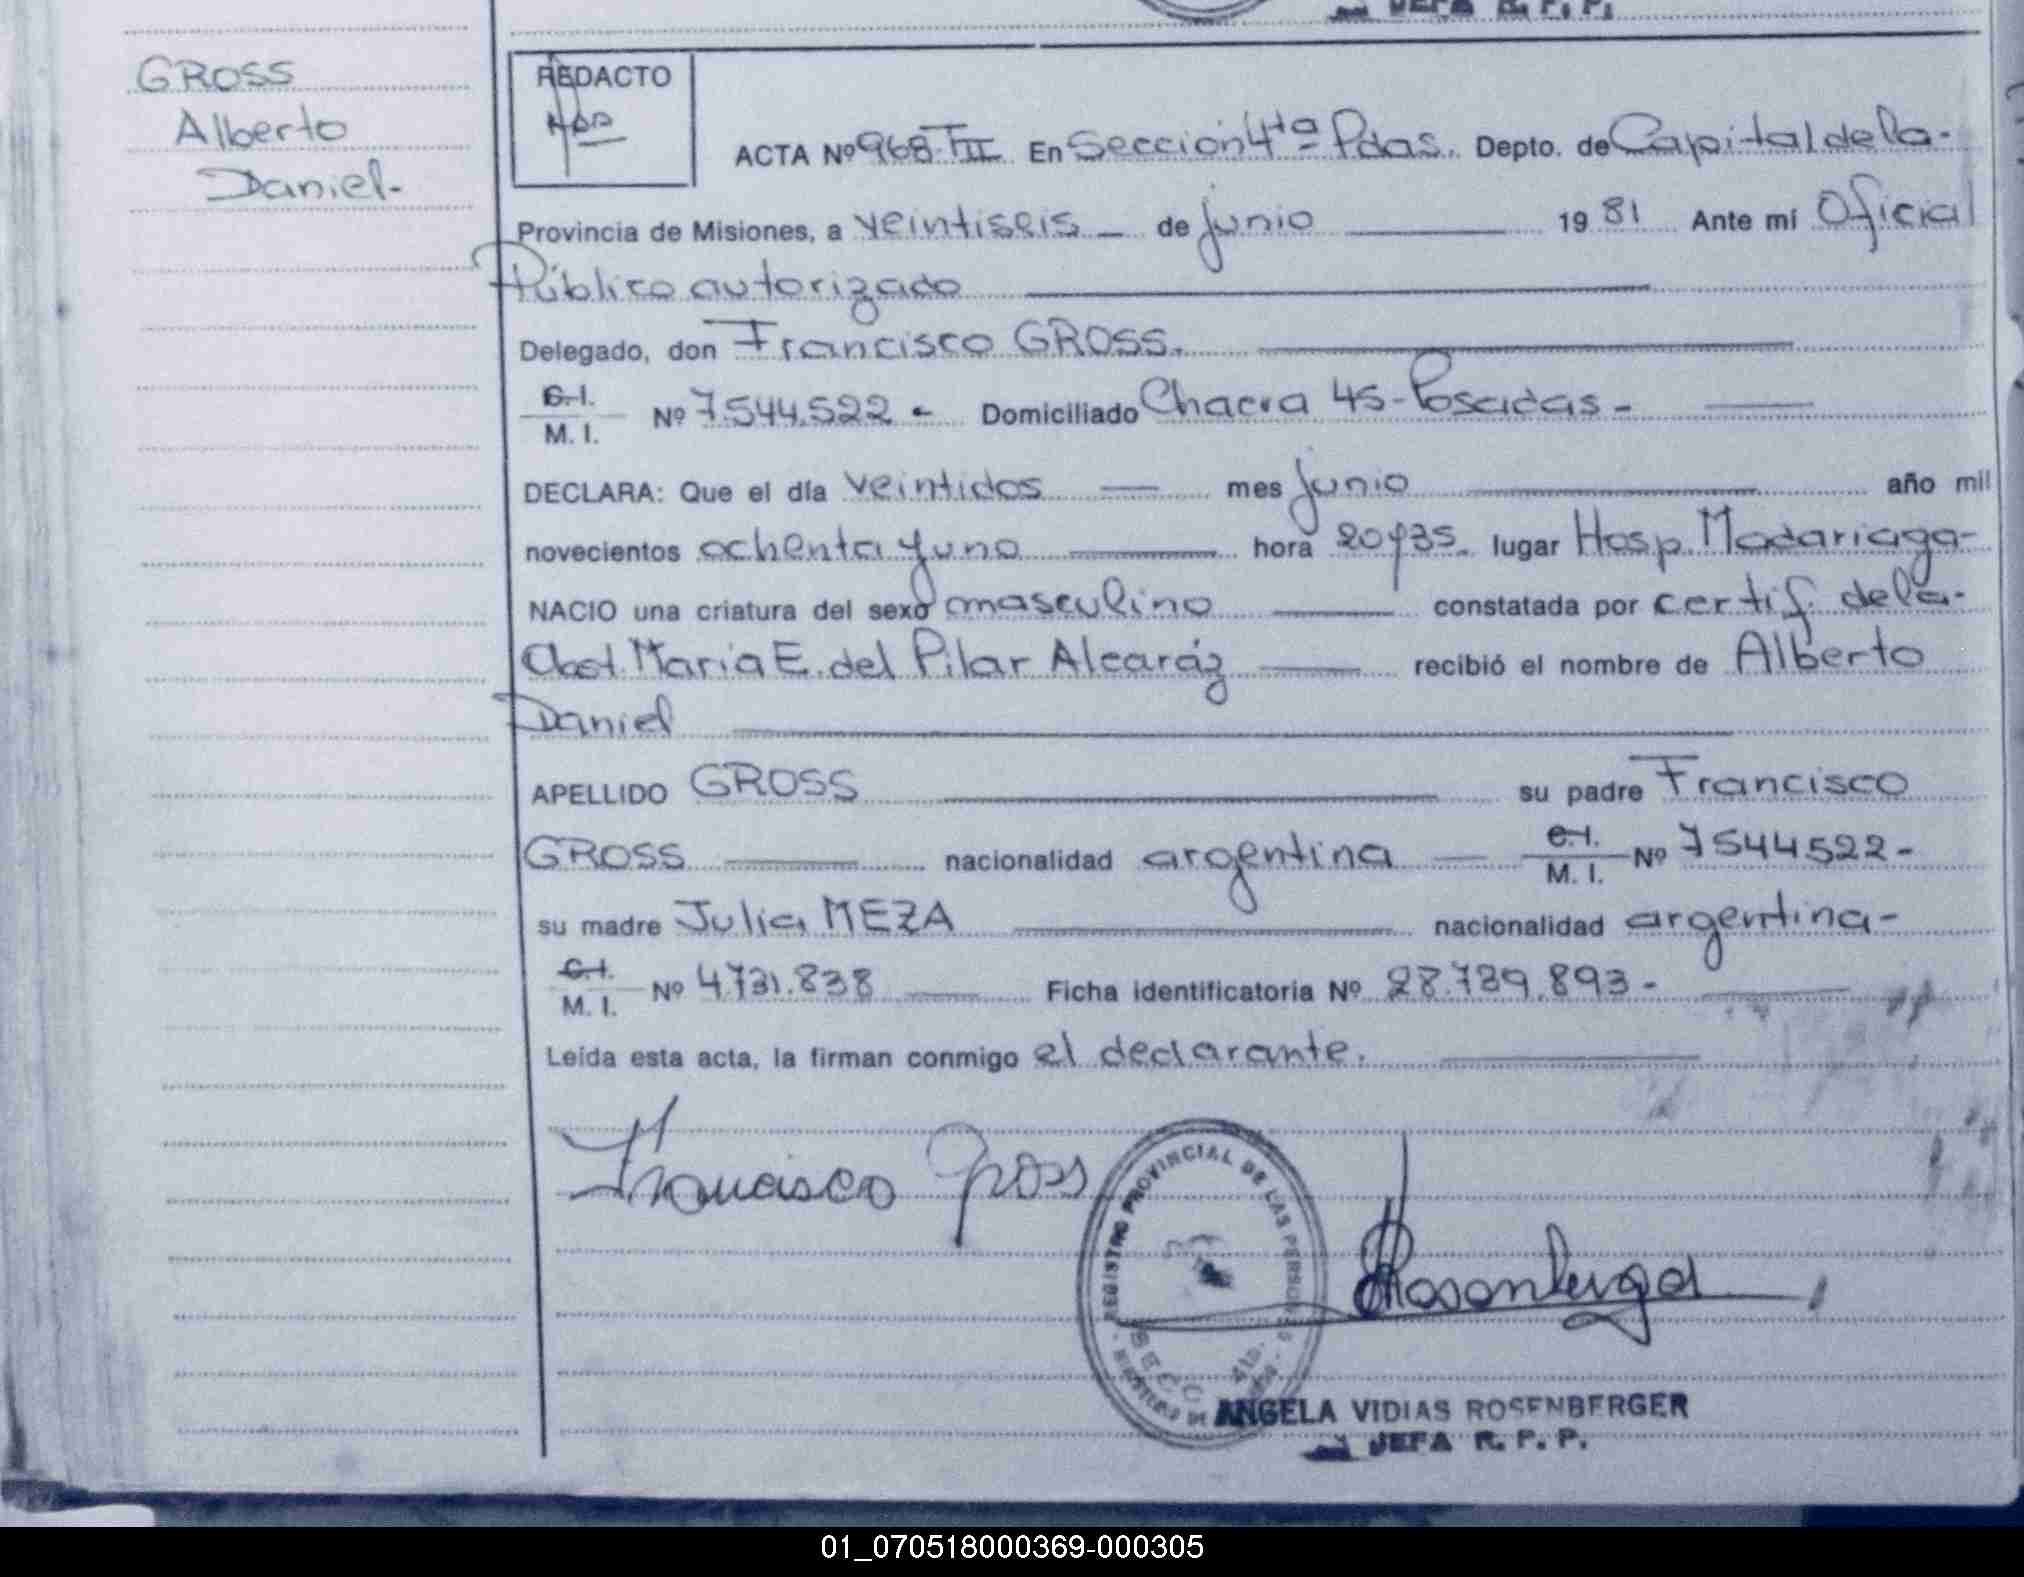 JEFA R. P. P.
GROSS
Alberto
Daniel-
REDACTO
ACTA Nº 968-TIII En Sección 4ta Pdas. Depto. de Capital de la-
Provincia de Misiones, a veintiseis - de junio 19 81 Ante mí Oficial
Público autorizado
Delegado, don Francisco GROSS.
C.I.
M. I. Nº 7.544.522 - Domiciliado Chacra 45-Posadas-
DECLARA: Que el día veintidos mes junio año mil
novecientos ochenta y uno hora 20 y 35. lugar Hosp. Madariaga-
NACIO una criatura del sexo masculino constatada por certif. de la-
Obst. María E. del Pilar Alcaráz recibió el nombre de Alberto
Daniel
APELLIDO GROSS su padre Francisco
GROSS nacionalidad argentina C.I. M. I. Nº 7544522-
su madre Julia MEZA nacionalidad argentina-
C.I.
M. I. Nº 4.731.838 Ficha identificatoria Nº 28.789.893-
Leída esta acta, la firman conmigo el declarante.
Francisco Gross
REGISTRO PROVINCIAL DE LAS PERSONAS
SECC. 4ta.
MINISTERIO DE
Rosenberger
ANGELA VIDIAS ROSENBERGER
JEFA R. P. P.
01_070518000369-000305